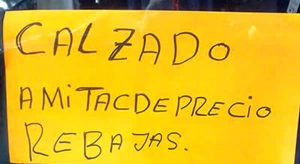 CALZADO
A MITAC DE PRECIO
REBAJAS.